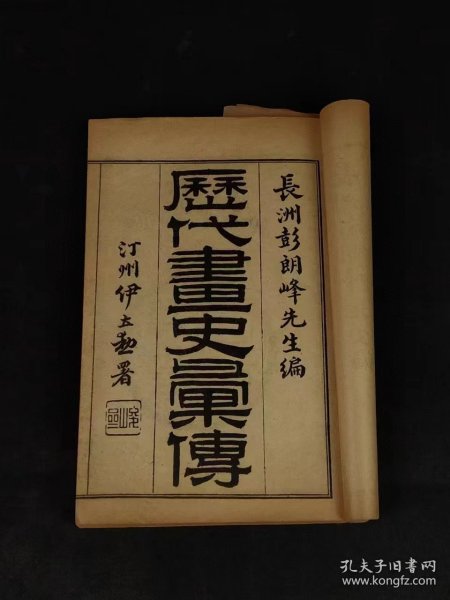 長洲彭朗峰先生編
歷代畫史彙傳
汀州伊立勳署
孔夫子旧书网
www.kongfz.com